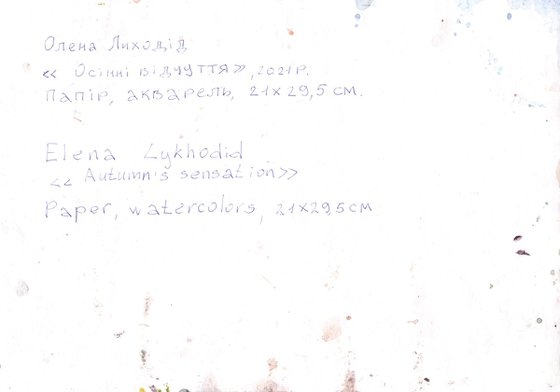 Олена Лиходід
« Осінні відчуття», 2021 р.
Папір, акварель, 21 x 29,5 см.
Elena Lykhodid
<< Autumn's sensation>>
Paper, watercolors, 21x29,5 см